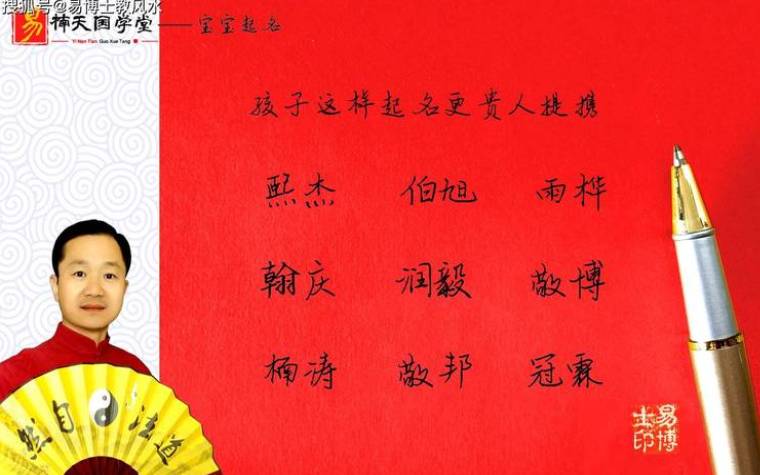 搜狐号@易博士教风水
易 楠天国学堂——宝宝起名
Yi Nan Tian Guo Xue Tang
孩子这样起名更贵人提携
熙杰 伯旭 雨桦
翰庆 润毅 敬博
楠涛 敬邦 冠霖
然自法道
易博士印